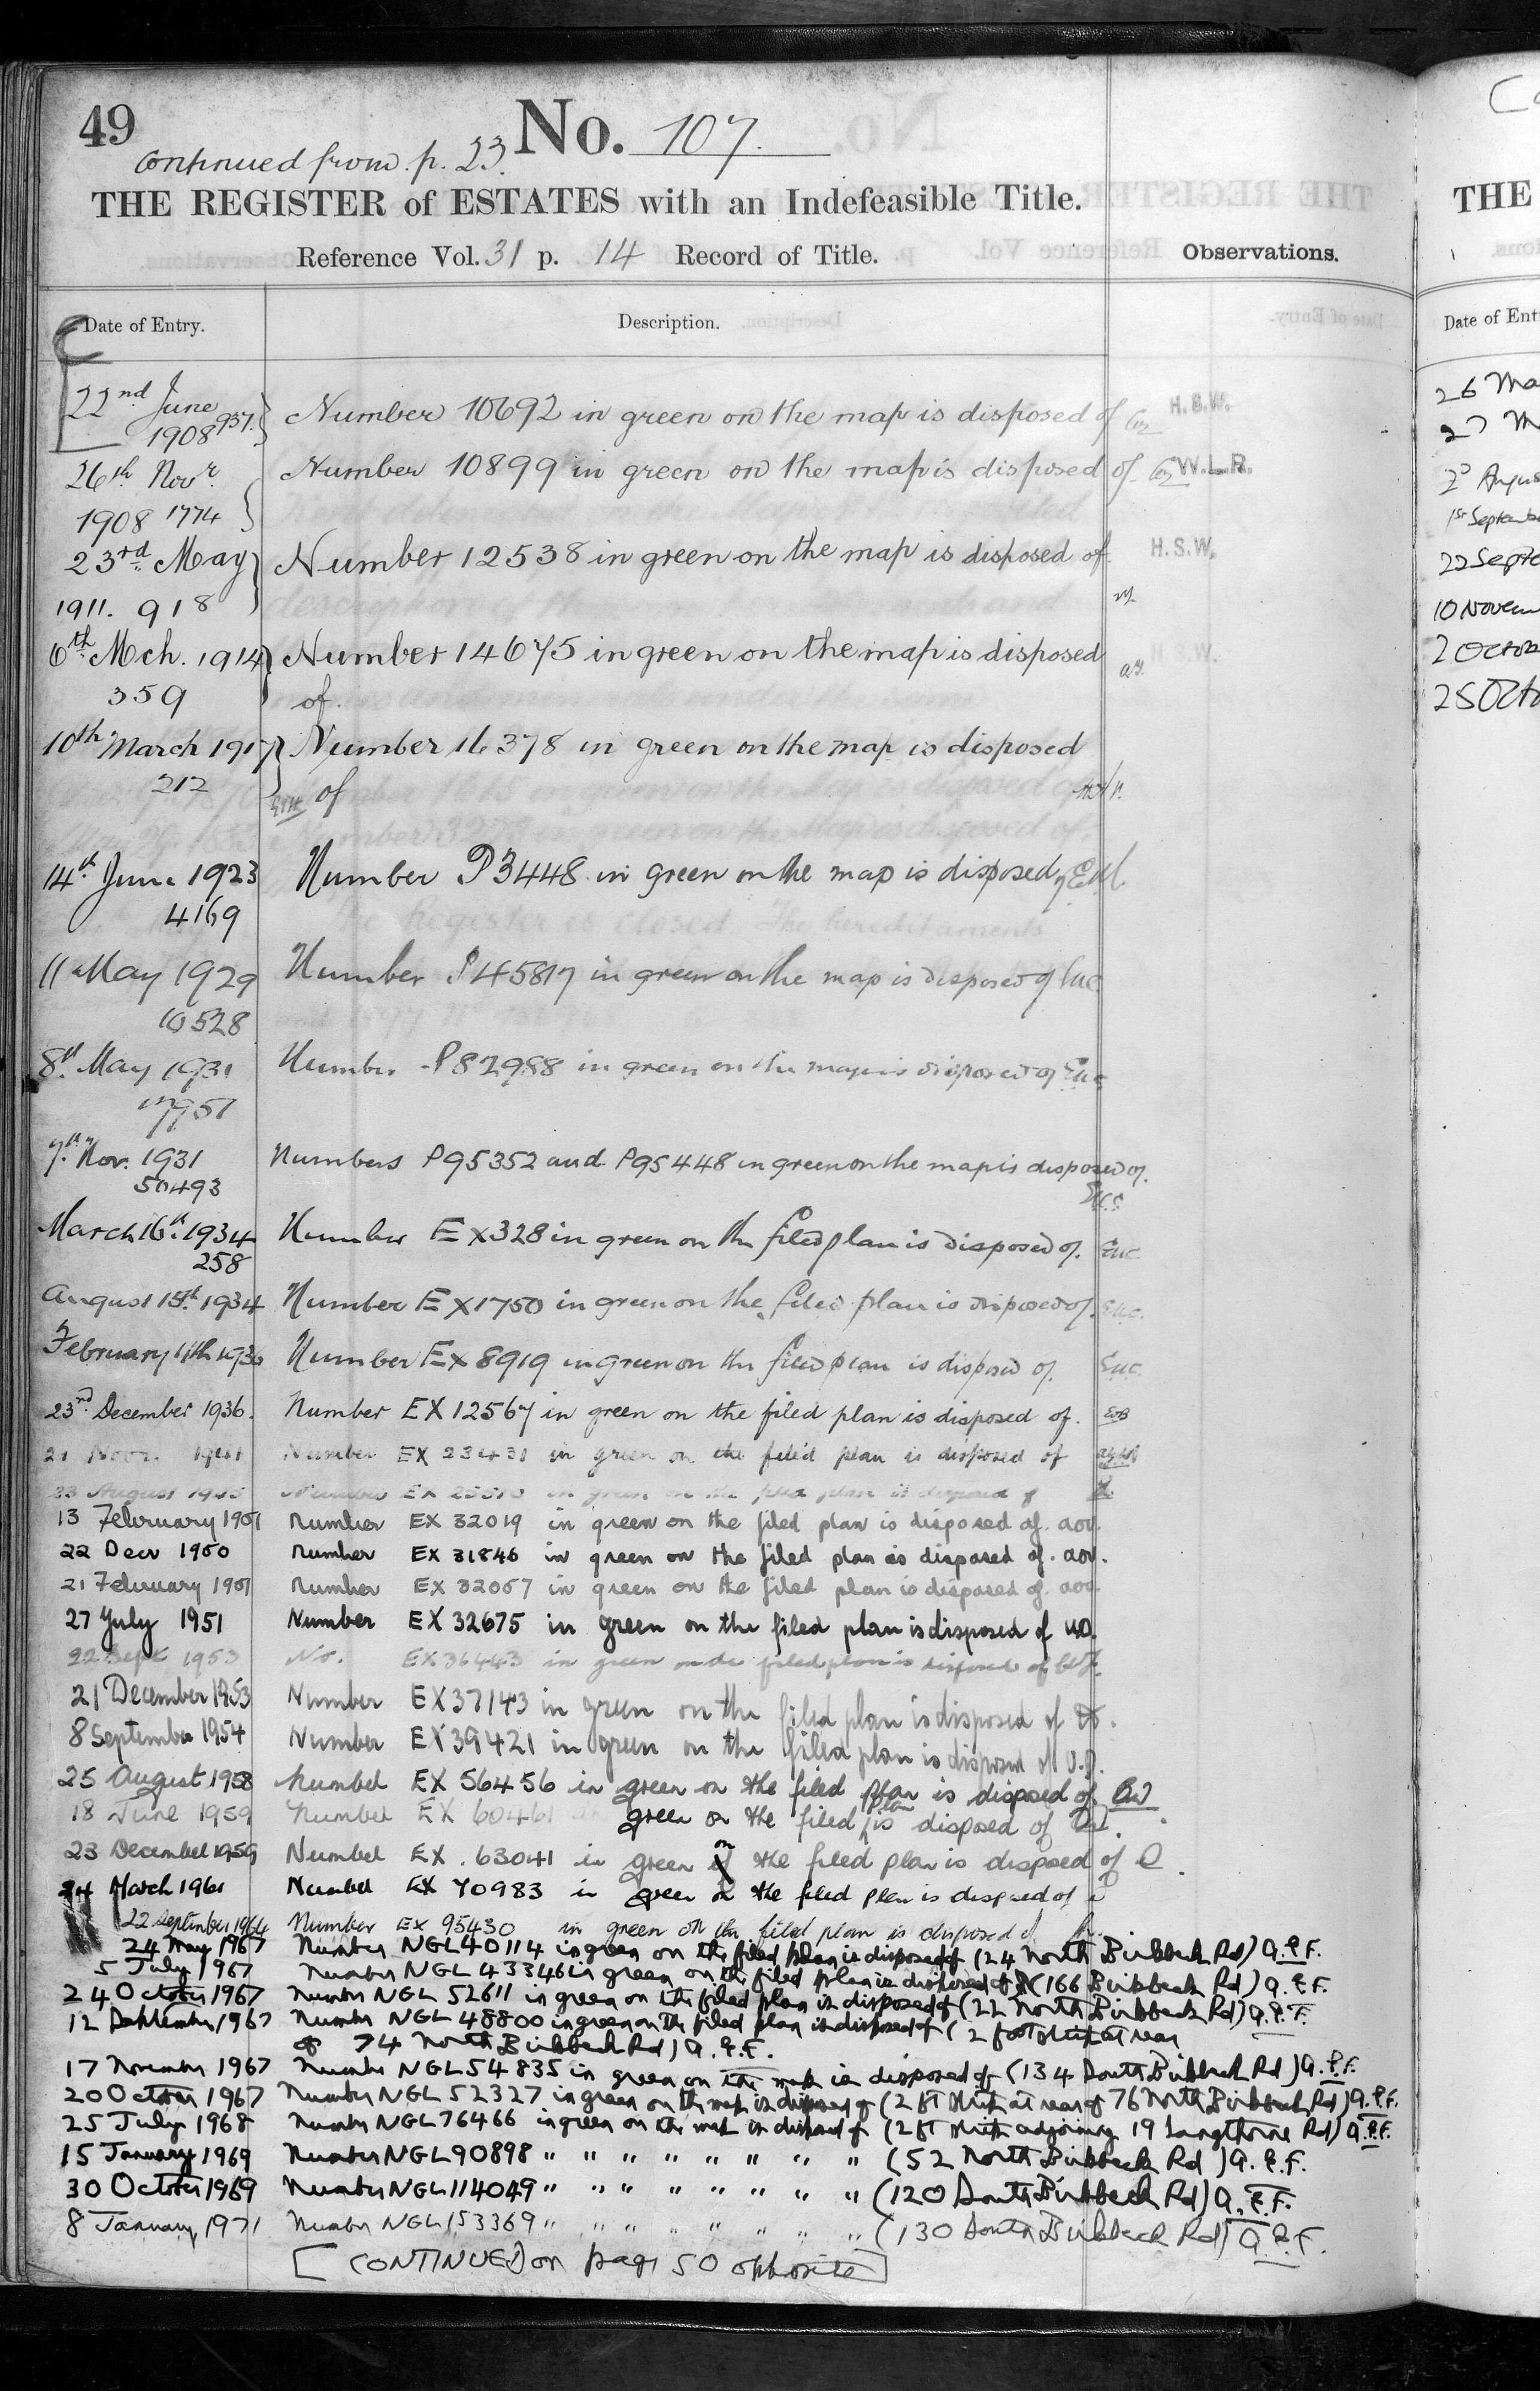 49
No. 107.
Continued from p. 23.
THE REGISTER of ESTATES with an Indefeasible Title.
Reference Vol. 31 p. 14 Record of Title.
Observations.
Date of Entry.
Description.
22nd June 1908 937. Number 10692 in green on the map is disposed of H.S.W.
26th Novr. 1908 1774 Number 10899 in green on the map is disposed of. W.L.R.
23rd May 1911. 918 Number 12538 in green on the map is disposed of. H.S.W.
6th Mch. 1914 359 Number 14675 in green on the map is disposed H.S.W.
of.
10th March 1917 212 Number 16378 in green on the map is disposed
of
14th June 1923 4169 Number P3448 in green on the map is disposed of
11 May 1929 10528 Number P45817 in green on the map is disposed of
8th May 1931 Number P82988 in green on the map is disposed of
7th Nov. 1931 50493 Numbers P95352 and P95448 in green on the map is disposed of.
March 16th 1934 258 Number EX328 in green on the filed plan is disposed of.
August 15th 1934 Number EX1750 in green on the filed plan is disposed of.
February 11th 1936 Number EX8919 in green on the filed plan is disposed of.
23rd December 1936. Number EX12567 in green on the filed plan is disposed of.
21 Novr. 1941 Number EX 23431 in green on the filed plan is disposed of
23 August 1945 Number EX in green on the filed plan is disposed of
13 February 1951 Number EX 32019 in green on the filed plan is disposed of. aov.
22 Decr 1950 Number EX 31846 in green on the filed plan is disposed of. aov.
21 February 1951 Number EX 32057 in green on the filed plan is disposed of. aov
27 July 1951 Number EX 32675 in green on the filed plan is disposed of
22 Sept 1953 No. EX36443 in green on the filed plan is disposed of
21 December 1953 Number EX37143 in green on the filed plan is disposed of
8 September 1954 Number EX39421 in green on the filed plan is disposed of
25 August 1958 Number EX 56456 in green on the filed plan is disposed of.
18 June 1959 Number EX 60461 in green on the filed plan is disposed of
23 December 1959 Number EX. 63041 in green on the filed plan is disposed of
24 March 1961 Number EX 70983 in green on the filed plan is disposed of
22 September 1964 Number EX 95430 in green on the filed plan is disposed of
24 May 1967 Number NGL40114 in green on the filed plan is disposed of (24 North Birkbeck Rd) A.E.F.
5 July 1967 Number NGL 43346 in green on the filed plan is disposed of (166 Birkbeck Rd) A.E.F.
24 October 1967 Number NGL 52611 in green on the filed plan is disposed of (22 North Birkbeck Rd) A.E.F.
12 September 1967 Number NGL 48800 in green on the filed plan is disposed of (2 foot strip at rear
of 74 North Birkbeck Rd) A.E.F.
17 November 1967 Number NGL54835 in green on the map is disposed of (134 South Birkbeck Rd) A.E.F.
20 October 1967 Number NGL 52327 in green on the map is disposed of (2 ft strip at rear of 76 North Birkbeck Rd) A.E.F.
25 July 1968 Number NGL76466 in green on the map is disposed of (2 ft strip adjoining 19 Langthorne Rd) A.E.F.
15 January 1969 Number NGL90898 " " " " " " " " (52 North Birkbeck Rd) A.E.F.
30 October 1969 Number NGL114049 " " " " " " " " (120 South Birkbeck Rd) A.E.F.
8 January 1971 Number NGL153369 " " " " " " " " (130 South Birkbeck Rd) A.E.F.
[CONTINUED on page 50 opposite]
THE
Date of
26
27
1st
22
10
2
25